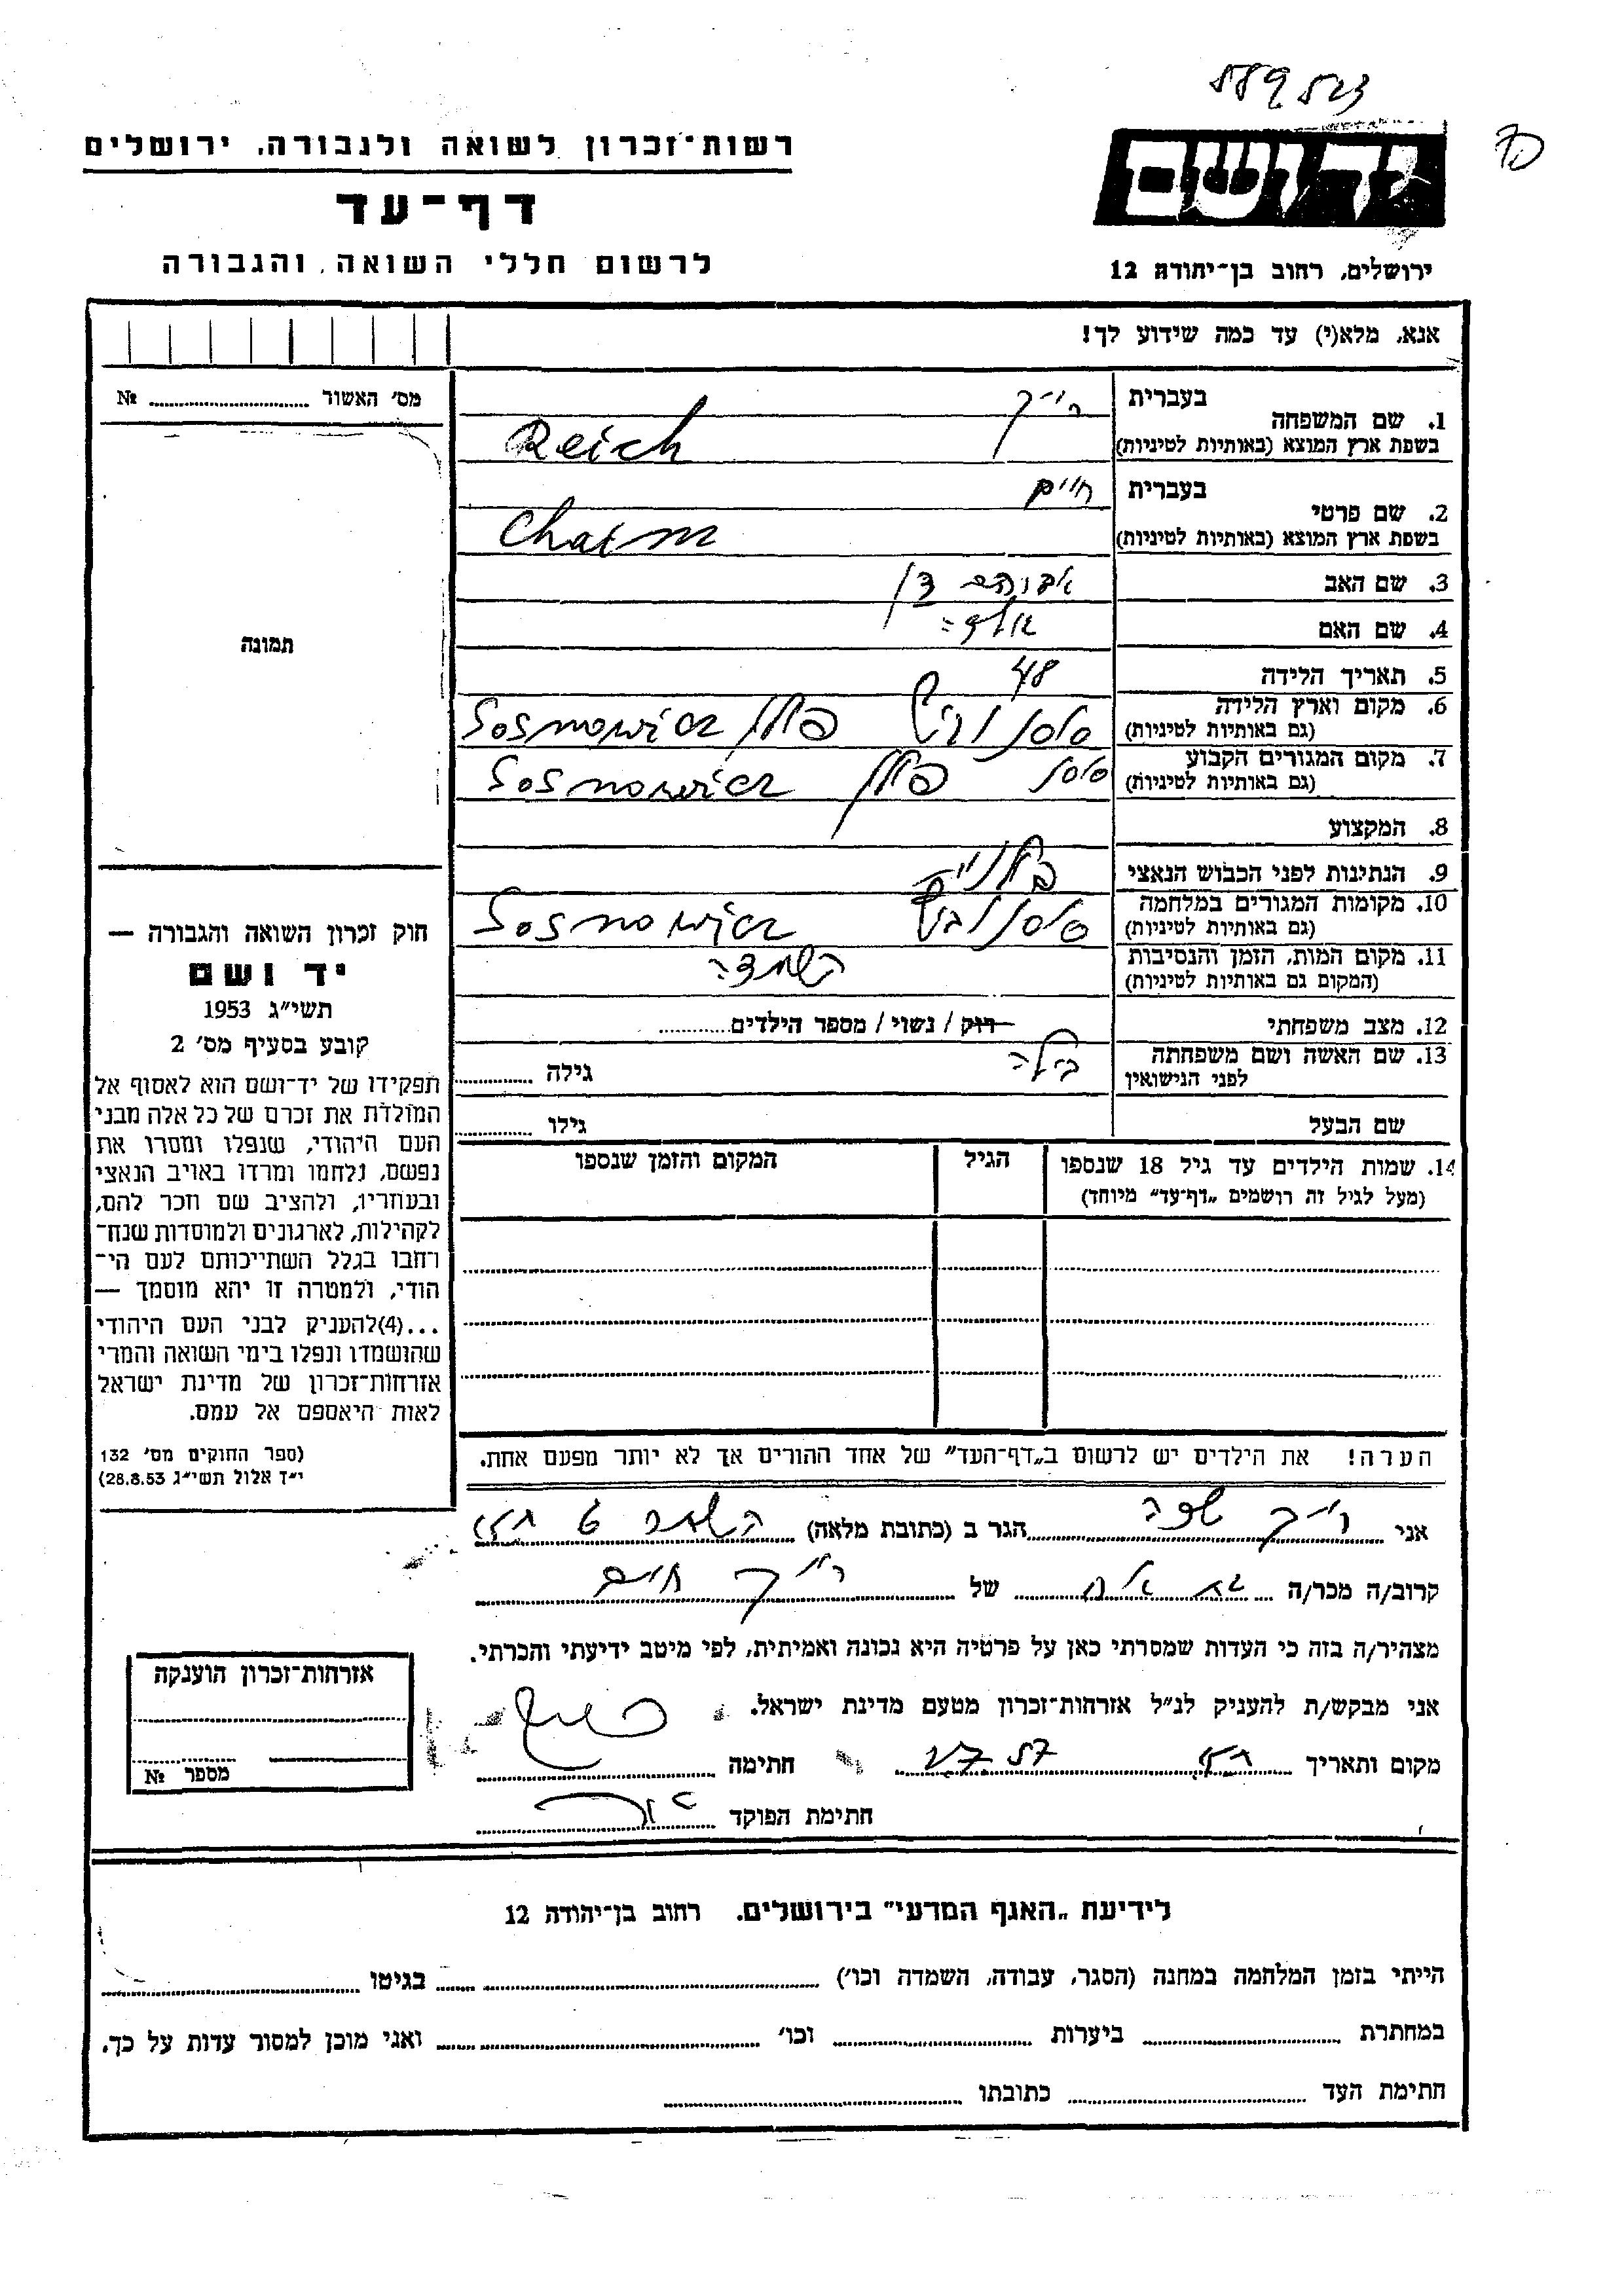 589523
רשות־זכרון לשואה ולגבורה, ירושלים
דף־עד
לרשום חללי השואה והגבורה
יד ושם
ירושלים, רחוב בן־יהודה 12
אנא, מלא(י) עד כמה שידוע לך!
מס' האשור № 
תמונה
1. שם המשפחה בעברית רייך
בשפת ארץ המוצא (באותיות לטיניות) Reich
2. שם פרטי בעברית חיים
בשפת ארץ המוצא (באותיות לטיניות) Chaim
3. שם האב אברהם
4. שם האם
5. תאריך הלידה 48
6. מקום וארץ הלידה (גם באותיות לטיניות) סוסנוביץ פולין Sosnowicz
7. מקום המגורים הקבוע (גם באותיות לטיניות) סוסנ פולין Sosnowicz
8. המקצוע
9. הנתינות לפני הכבוש הנאצי פולניה
10. מקומות המגורים במלחמה (גם באותיות לטיניות) סוסנוביץ Sosnowicz
11. מקום המות, הזמן והנסיבות (המקום גם באותיות לטיניות) השמדה
12. מצב משפחתי רוק / נשוי / מספר הילדים
13. שם האשה ושם משפחתה לפני הנישואין בילה גילה
שם הבעל גילו
14. שמות הילדים עד גיל 18 שנספו (מעל לגיל זה רושמים „דף־עד" מיוחד) הגיל המקום והזמן שנספו
הערה! את הילדים יש לרשום ב„דף־העד" של אחד ההורים אך לא יותר מפעם אחת.
חוק זכרון השואה והגבורה —
יד ושם
תשי"ג 1953
קובע בסעיף מס' 2
תפקידו של יד־ושם הוא לאסוף אל
המולדת את זכרם של כל אלה מבני
העם היהודי, שנפלו ומסרו את
נפשם, נלחמו ומרדו באויב הנאצי
ובעוזריו, ולהציב שם וזכר להם,
לקהילות, לארגונים ולמוסדות שנח־
רבו בגלל השתייכותם לעם הי־
הודי, ולמטרה זו יהא מוסמך —
...(4)להעניק לבני העם היהודי
שהושמדו ונפלו בימי השואה והמרי
אזרחות־זכרון של מדינת ישראל
לאות היאספם אל עמם.
(ספר החוקים מס' 132
י"ד אלול תשי"ג 28.8.53)
אני רייך הגר ב (כתובת מלאה)
קרוב/ה מכר/ה של רייך חיים
מצהיר/ה בזה כי העדות שמסרתי כאן על פרטיה היא נכונה ואמיתית, לפי מיטב ידיעתי והכרתי.
אני מבקש/ת להעניק לנ"ל אזרחות־זכרון מטעם מדינת ישראל.
מקום ותאריך חתימה
חתימת הפוקד
אזרחות־זכרון הוענקה
מספר №
לידיעת „האגף המדעי" בירושלים. רחוב בן־יהודה 12
הייתי בזמן המלחמה במחנה (הסגר, עבודה, השמדה וכו') בגיטו
במחתרת ביערות וכו' ואני מוכן למסור עדות על כך.
חתימת העד כתובתו